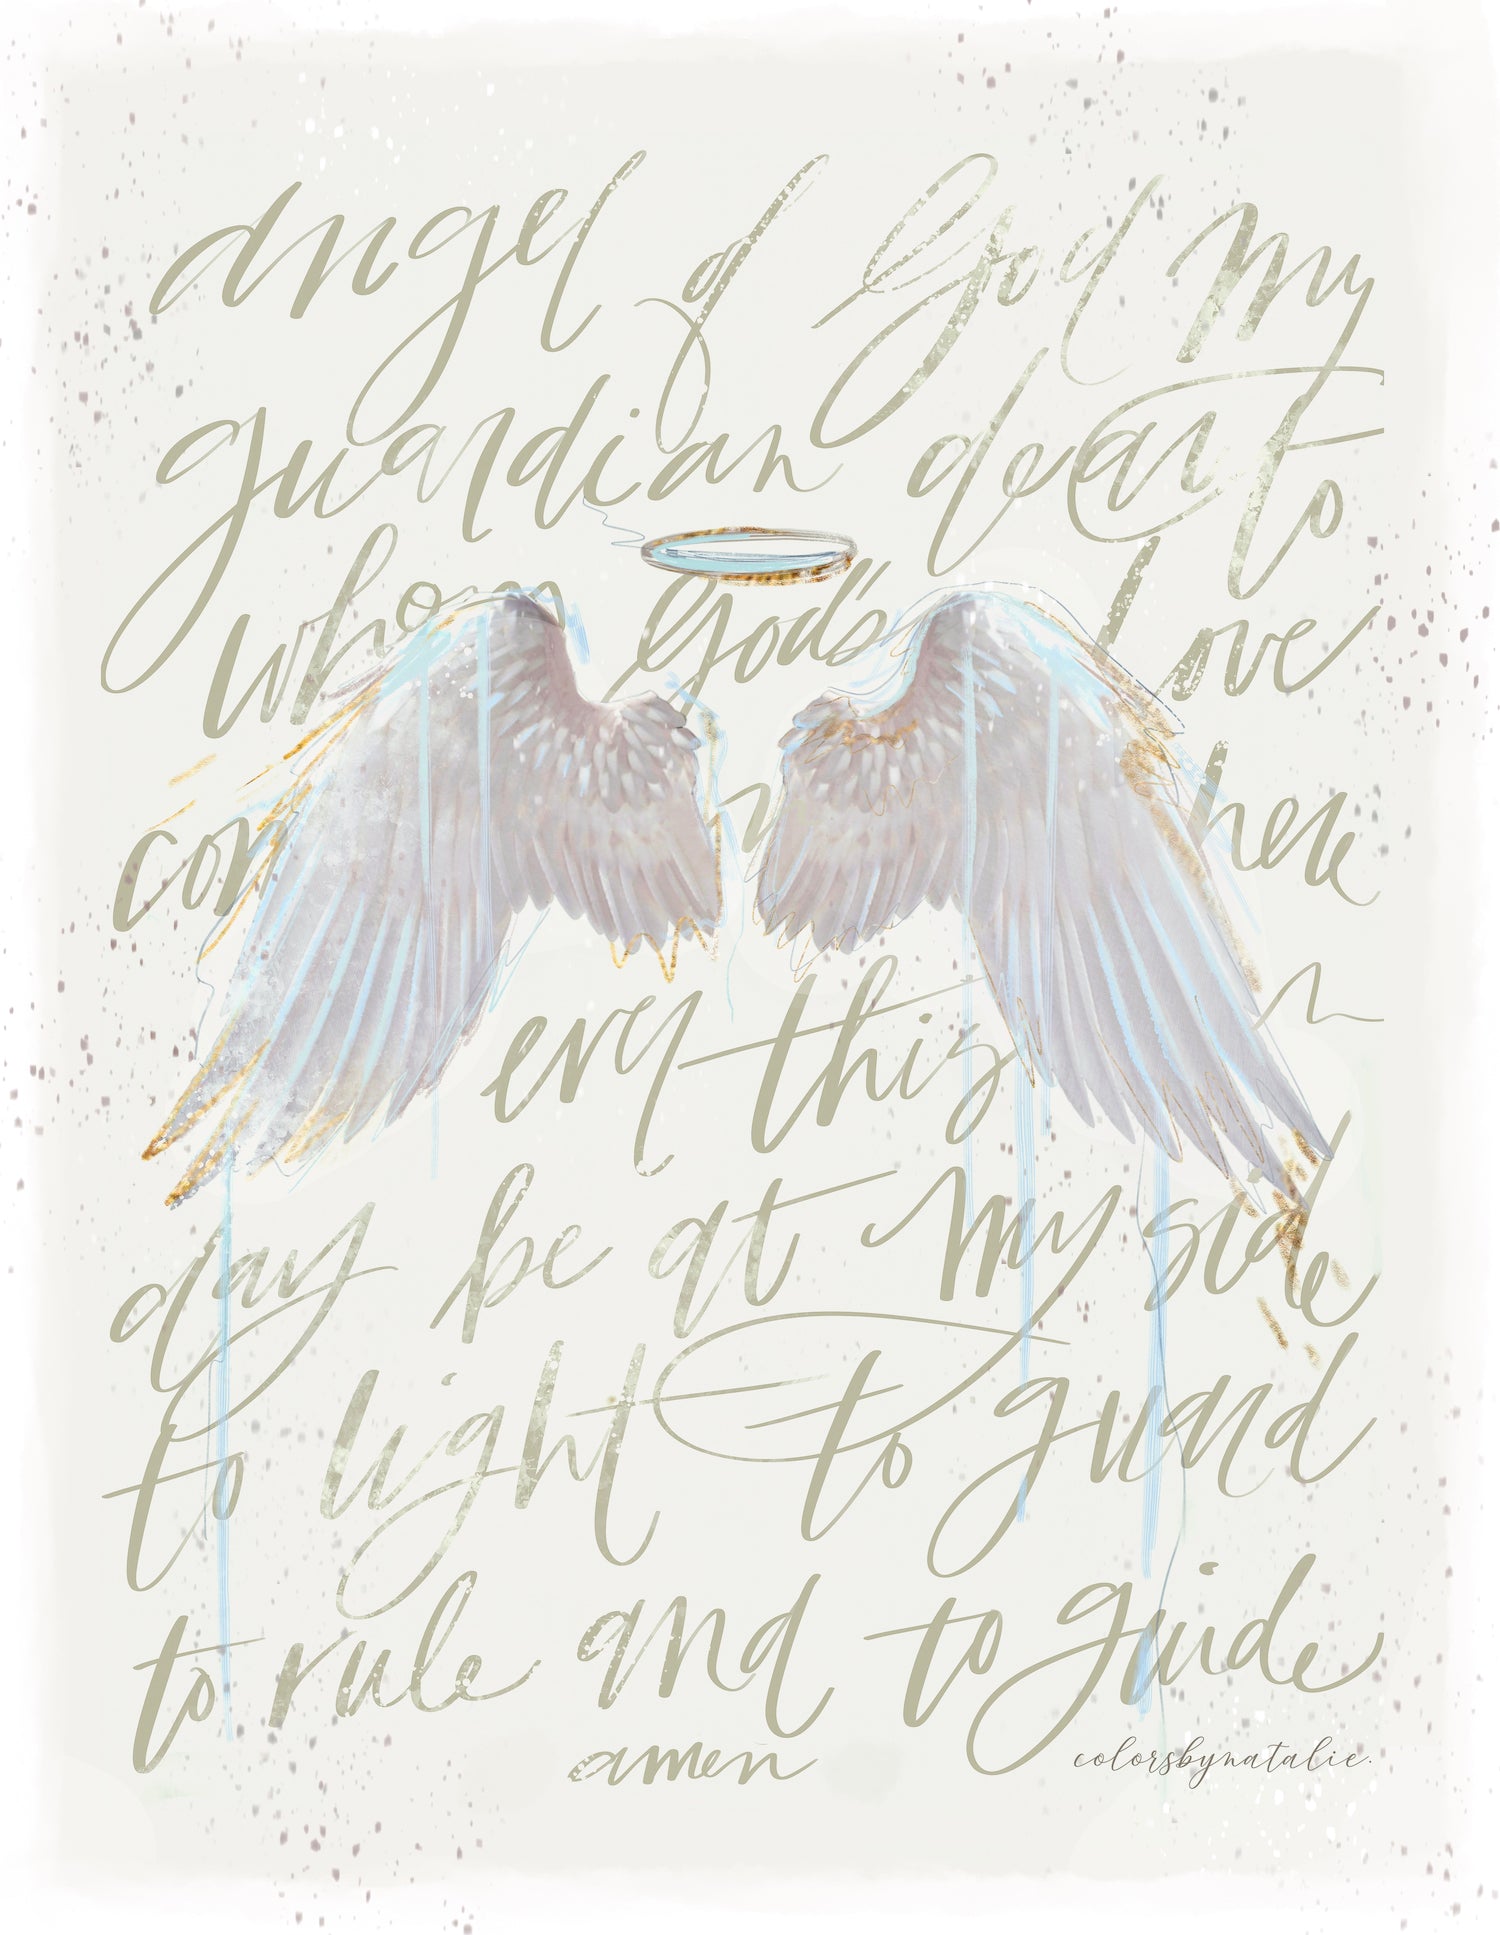 angel of God my
guardian dear to
whom God's love
com m here
ery this
day be at my side
to light to guard
to rule and to guide
amen
colorsbynatalie.